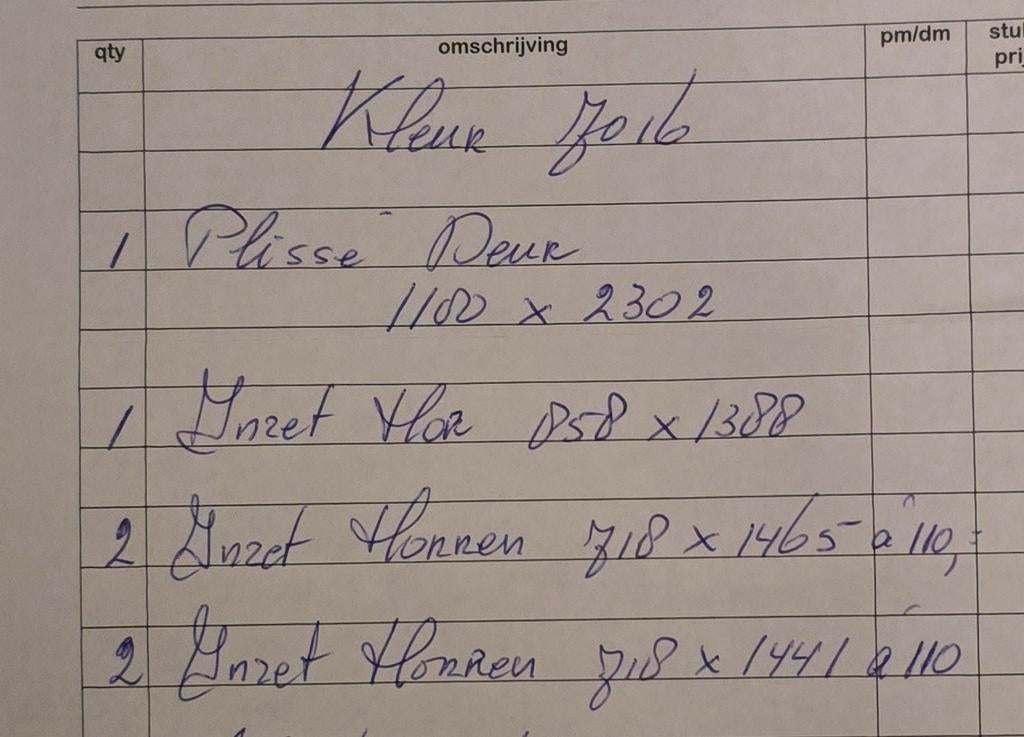 qty omschrijving pm/dm stu prij
Kleur 7016
1 Plissé Deur
1100 x 2302
1 Inzet Hor 858 x 1388
2 Inzet Horren 718 x 1465 à 110,-
2 Inzet Horren 718 x 1441 à 110